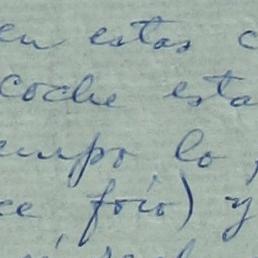 en estas c
coche esta
empo lo
ce frio) y